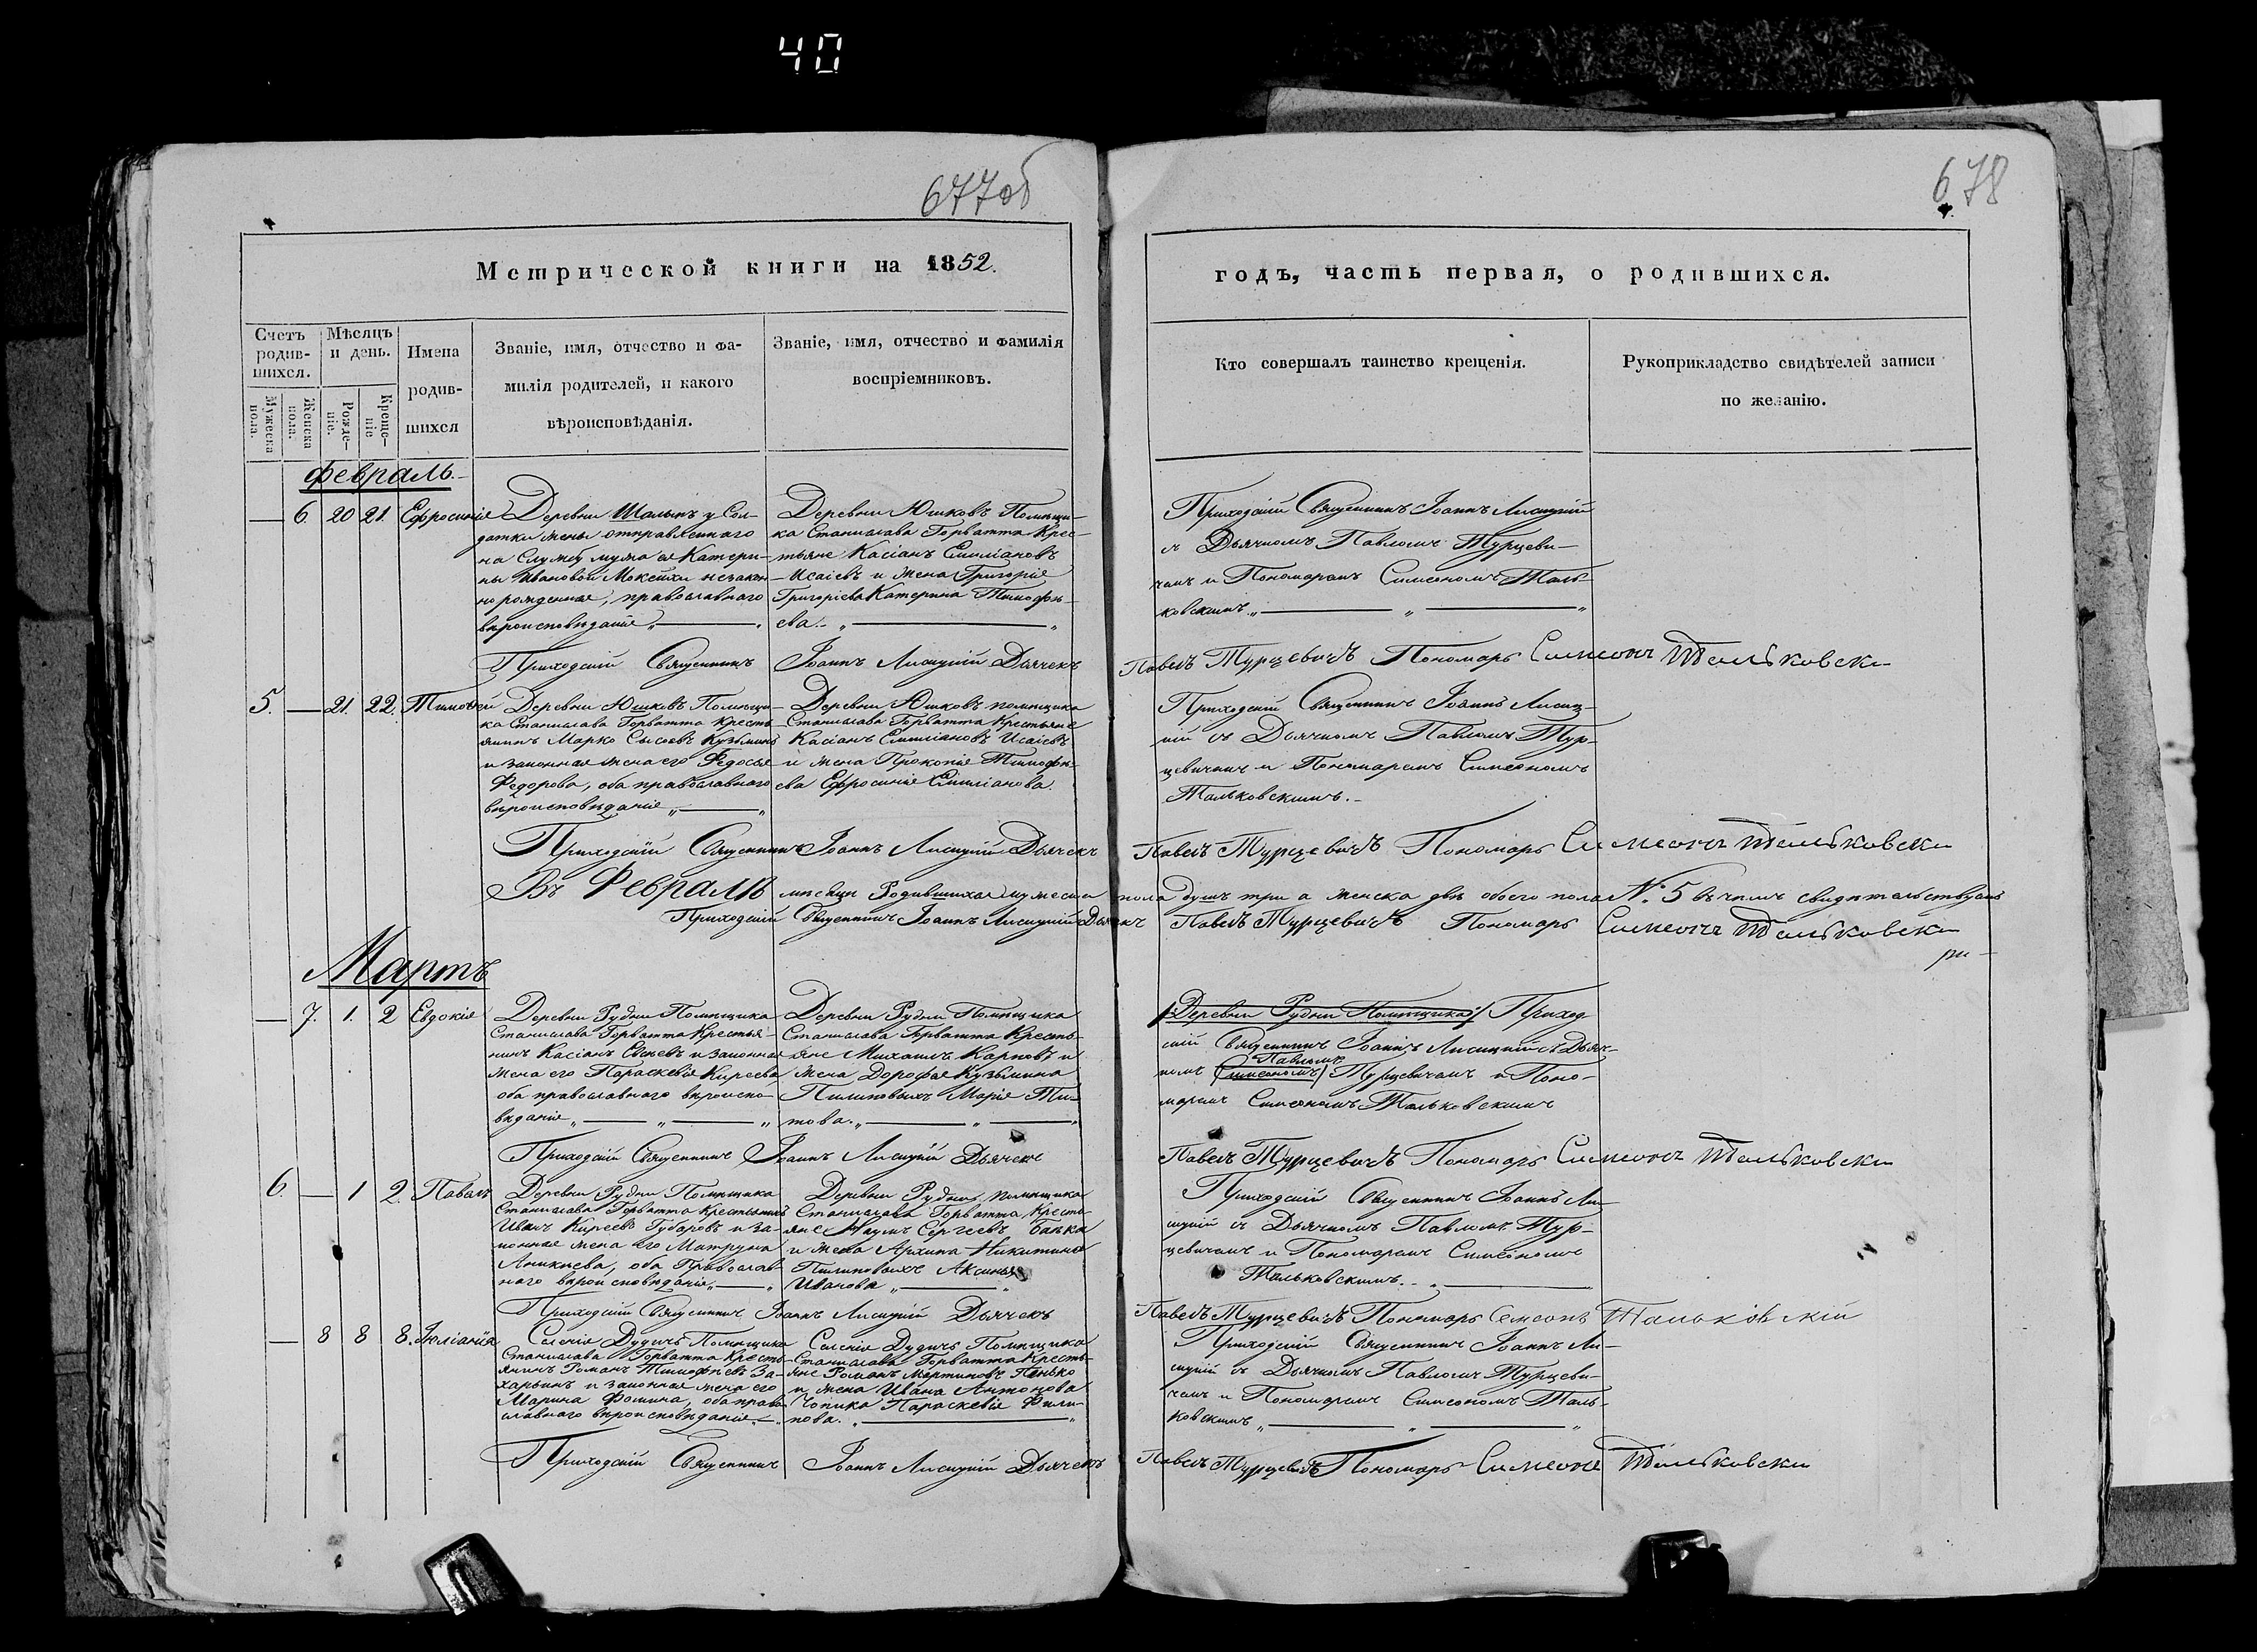 40
677об
678
Метрической книги на 1852.
годъ, часть первая, о родившихся.
Счетъ родив-шихся.
Мужеска пола.
Женска пола.
Мѣсяцъ и день.
Рожде-ніе.
Креще-ніе
Имена родив-шихся
Званіе, имя, отчество и фа-
милія родителей, и какого
вѣроисповѣданія.
Званіе, имя, отчество и фамилія
воспріемниковъ.
Кто совершалъ таинство крещенія.
Рукоприкладство свидѣтелей записи
по желанію.
Февраль.
— 6. 20 21. Ефросинія
Деревни Шалынъ у Сол-
датки жены отправленнаго
на Службу мужа ея Катери-
ны Ивановой Мокейхи незакон-
но рожденная, православнаго
вѣроисповѣданія „ — „
Деревни Юшковъ Помѣщи-
ка Станислава Горватта Крес-
тьяне Касіанъ Емиліановъ
Исаіевъ и жена Григорія
Григоріева Катерина Тимофѣ-
ева. — „ — „
Приходскій Священникъ Іоаннъ Лисицкій
съ Дьячкомъ Павломъ Турцеви-
чемъ и Пономаремъ Симеономъ Таль-
ковскимъ. „ — „ — „
Приходскій Священникъ Іоаннъ Лисицкій Дьячекъ Павелъ Турцевичъ Пономарь Симеонъ Тальковски
5. — 21. 22. Тимофей
Деревни Юшковъ Помѣщи-
ка Станислава Горватта Кресть-
янинъ Марко Сысоевъ Кузьминъ
и законная жена его Федосья
Федорова, оба православнаго
вѣроисповѣданія „ — „
Деревни Юшковъ помѣщика
Станислава Горватта Крестьяне
Касіанъ Емиліановъ Исаіевъ
и жена Прокопія Тимофѣ-
ева Ефросинія Емиліанова.
Приходскій Священникъ Іоаннъ Лисиц-
кій съ Дьячкомъ Павломъ Тур-
цевичемъ и Пономаремъ Симеономъ
Тальковскимъ. —
Приходскій Священникъ Іоаннъ Лисицкій Дьячекъ Павелъ Турцевичъ Пономарь Симеонъ Тальковски
Въ Февралѣ мѣсяцѣ Родившихся мужеска пола душъ три а женска двѣ обоего пола №. 5 въ чемъ свидѣтельствуемъ
Приходскій Священникъ Іоаннъ Лисицкій Дьячекъ Павелъ Турцевичъ Пономарь Симеонъ Тальковски
Мартъ
— 7. 1. 2 Евдокія
Деревни Рудни Помѣщика
Станислава Горватта Крестья-
нинъ Касіанъ и законная
жена его Параскевія Киреева
оба православнаго вѣроиспо-
вѣданія „ — „ — „
Деревни Рудни Помѣщика
Станислава Горватта Кресть-
яне Михаилъ Карповъ и
жена Дорофея Кузьмина
Пилиповыхъ Марія Ти-
това. „ — „ — „
Деревни Рудни Помѣщика Приход-
скій Священникъ Іоаннъ Лисицкій съ Дьяч-
комъ Симеономъ Павломъ Турцевичемъ и Поно-
маремъ Симеономъ Тальковскимъ
Приходскій Священникъ Іоаннъ Лисицкій Дьячекъ Павелъ Турцевичъ Пономарь Симеонъ Тальковски
6. — 1 2. Павелъ
Деревни Рудни Помѣщика
Станислава Горватта Крестьянинъ
Иванъ Киреевъ Губаровъ и за-
конная жена его Матруна
Аникиева, оба Православ-
наго вѣроисповѣданія, „ — „
Деревни Рудни помѣщика
Станислава Горватта Кресть-
яне Наумъ Сергеевъ Банка
и жена Архипа Никитина
Пилиповыхъ Аксинья
Иванова „ — „
Приходскій Священникъ Іоаннъ Ли-
сицкій съ Дьячкомъ Павломъ Тур-
цевичемъ и Пономаремъ Симеономъ
Тальковскимъ. — „ —
Приходскій Священникъ Іоаннъ Лисицкій Дьячекъ Павелъ Турцевичъ Пономарь Семеонъ Тальковскій
— 8 8 8. Іюліанія
Селенія Дудичъ Помѣщика
Станислава Горватта Кресть-
янинъ Романъ Тимофѣевъ За-
харьинъ и законная жена его
Марина Фомина, оба право-
славнаго вѣроисповѣданія „ — „
Селенія Дудичъ Помѣщика
Станислава Горватта Кресть-
яне Романъ Мартиновъ Пенько
и жена Ивана Антонова
Чопика Параскевія Фили-
пова. „ — „
Приходскій Священникъ Іоаннъ Ли-
сицкій съ Дьячкомъ Павломъ Турцеви-
чемъ и Пономаремъ Симеономъ Таль-
ковскимъ „ — „ — „
Приходскій Священникъ Іоаннъ Лисицкій Дьячекъ Павелъ Турцевичъ Пономарь Симеонъ Тальковски